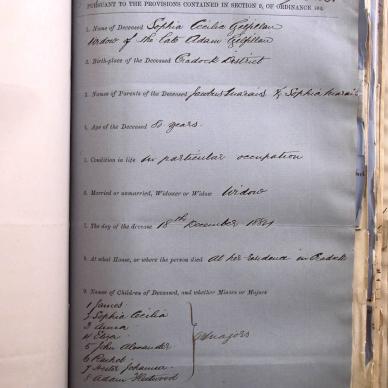 PURSUANT TO THE PROVISIONS CONTAINED IN SECTION 9, OF ORDINANCE
1. Name of Deceased Sophia Cecilia Gilfillan
Widow of the late Adam Gilfillan
2. Birth-place of the Deceased Cradock District
3. Names of Parents of the Deceased Jacobus Marais & Sophia Marais
4. Age of the Deceased 80 years
5. Condition in life no particular occupation
6. Married or unmarried, Widower or Widow Widow
7. The day of the decease 18th December
8. At what House, or where the person died At her residence in Cradock
9. Names of Children of Deceased, and whether Minors or Majors
1 James
2 Sophia Cecilia
3 Anna
4 Eliza
5 John Alexander
6 Rachel
7 Hester Johanna
8 Adam Fleetwood
Majors